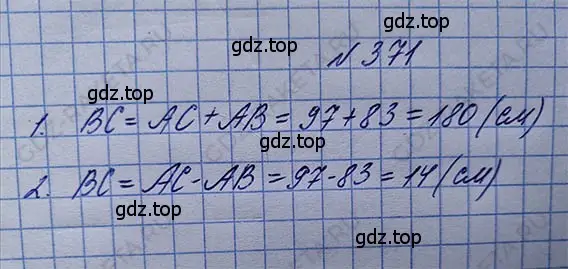 gdz.top
gdz.top
№ 371
gdz.top
1. BC = AC + AB = 97 + 83 = 180 (см)
gdz.top
2. BC = AC - AB = 97 - 83 = 14 (см)
gdz.top
gdz.top